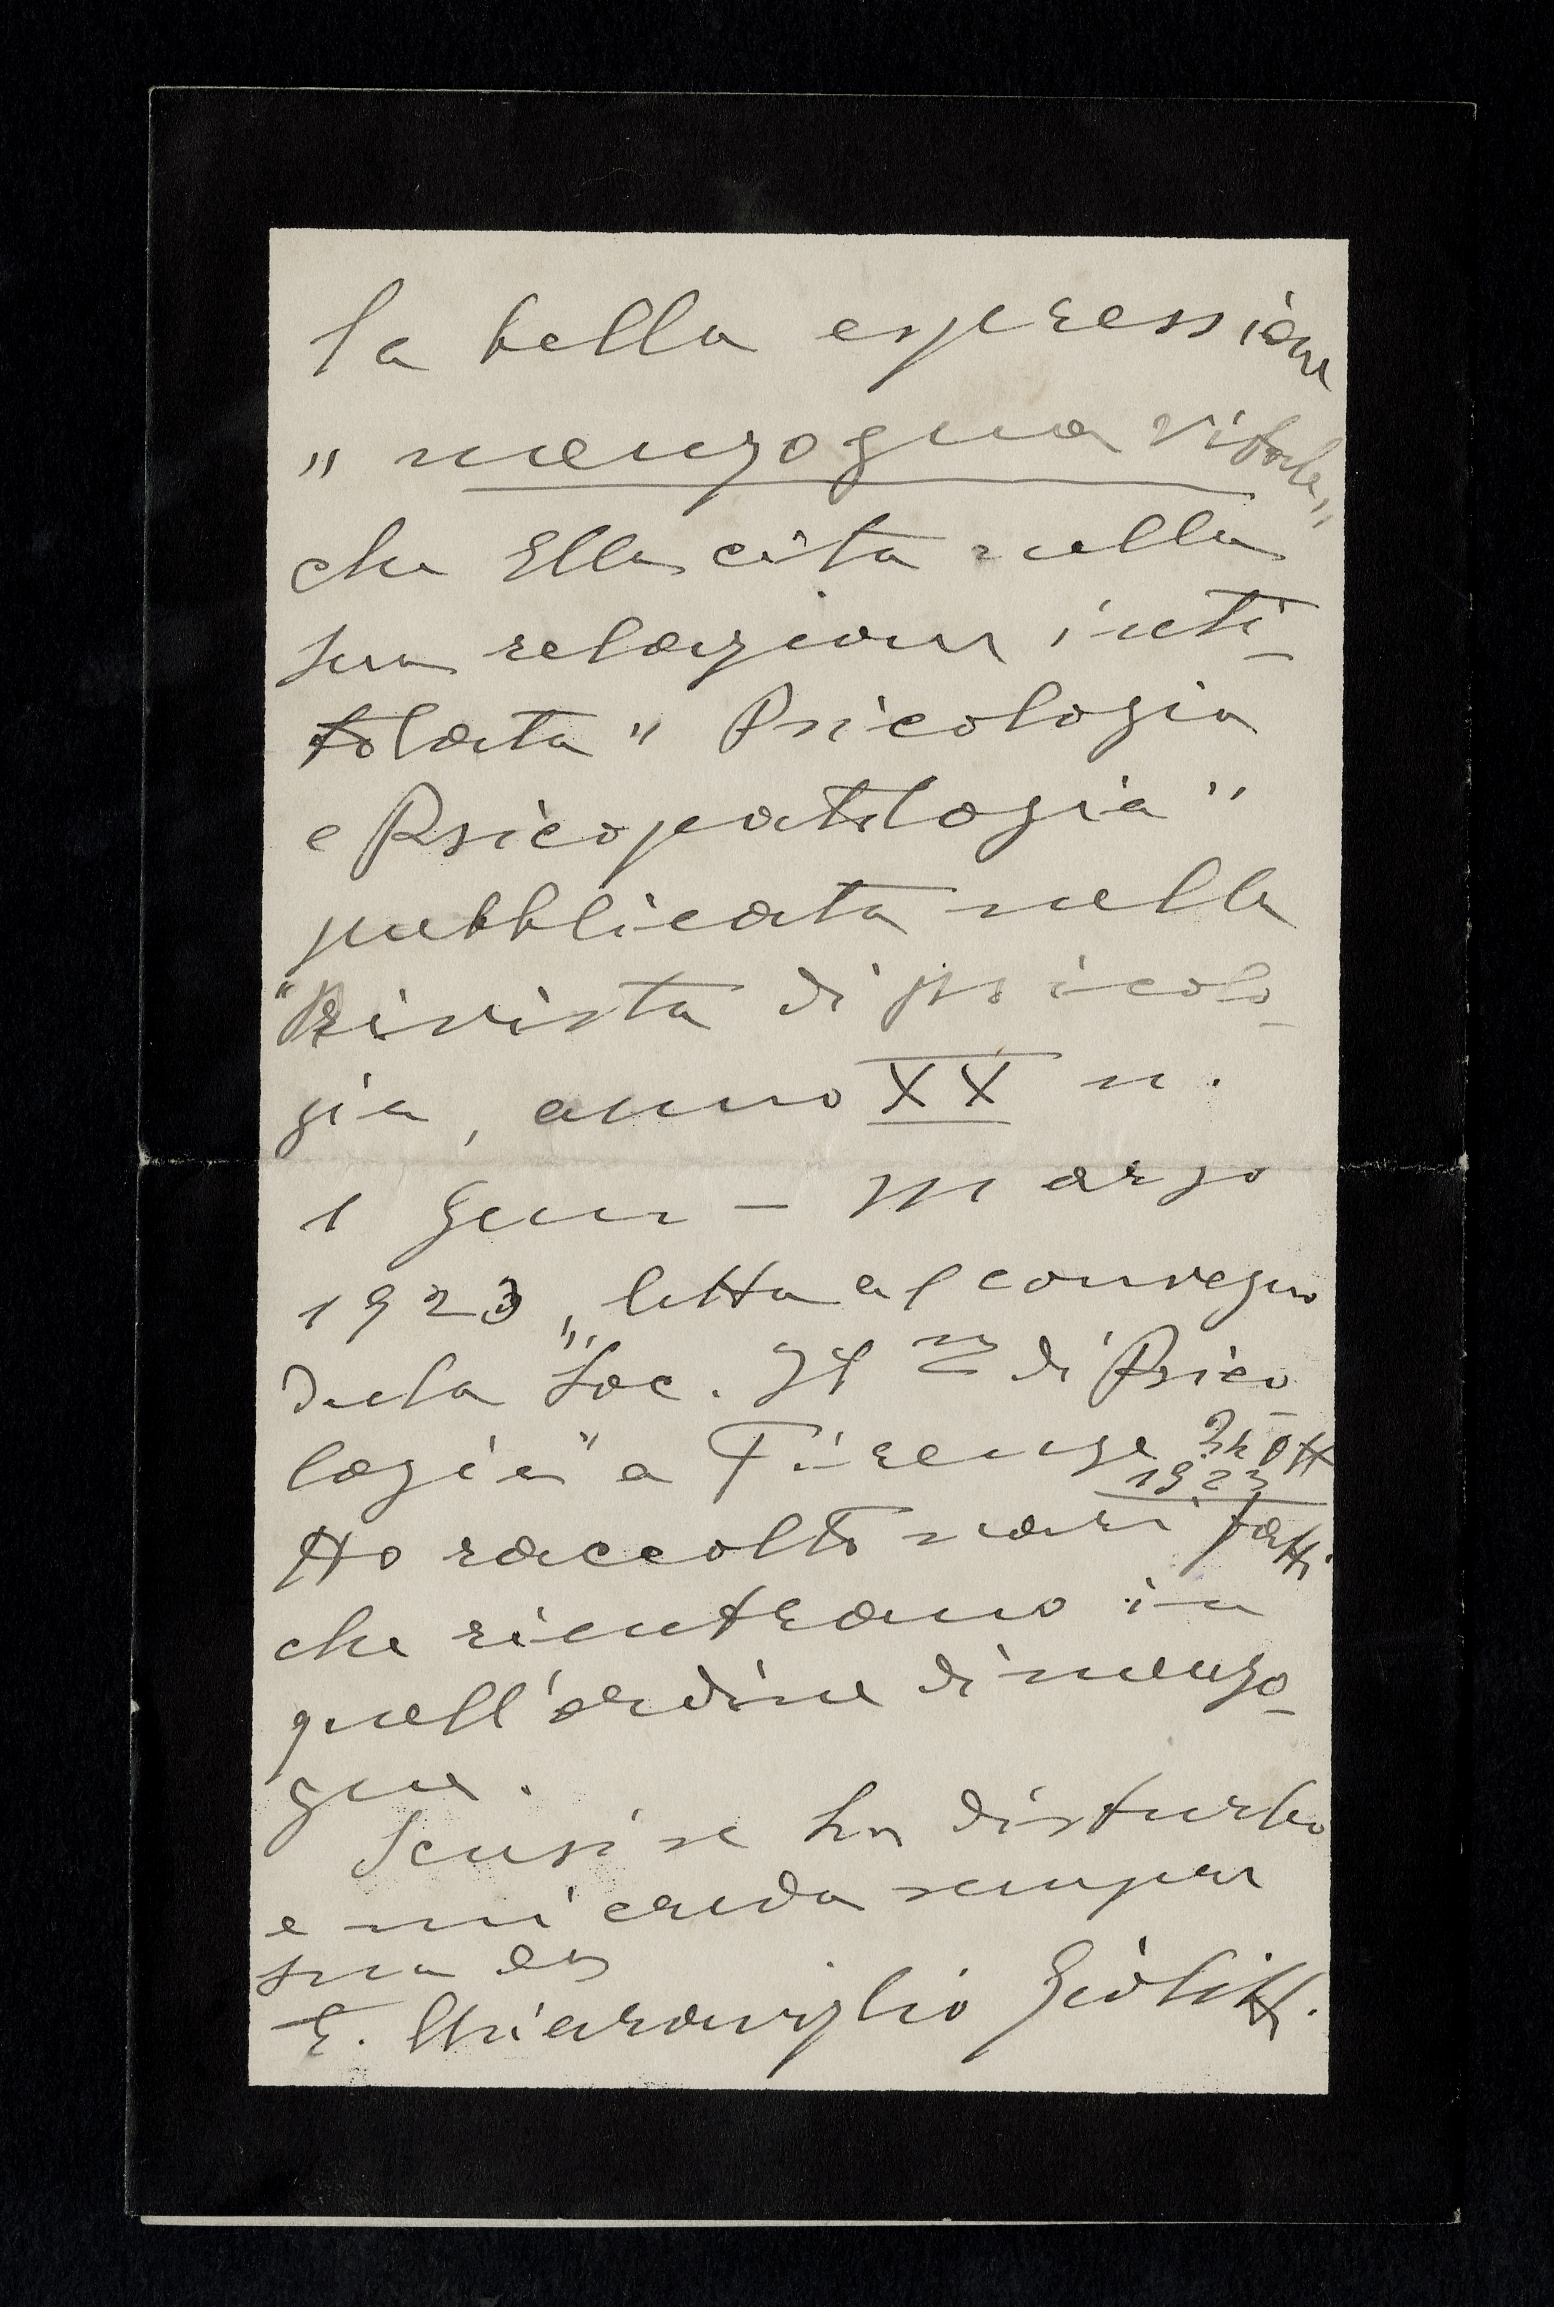 la bella espressione
" menzogna vitale "
che Ella cita nella
sua relazione inti-
tolata " Psicologia
e Psicopatologia "
pubblicata nella
"Rivista di psicolo-
gia, anno XX n.
1 Genn - Marzo
1923", letta al convegno
della "Soc. It na di Psico-
logia" a Firenze Ott
1923
Ho raccolto vari fatti
che rientrano in
quell'ordine di menzo-
gne.
Scusi se La disturbo
e mi creda sempre
sua
E. Chiaraviglio Giolitti.